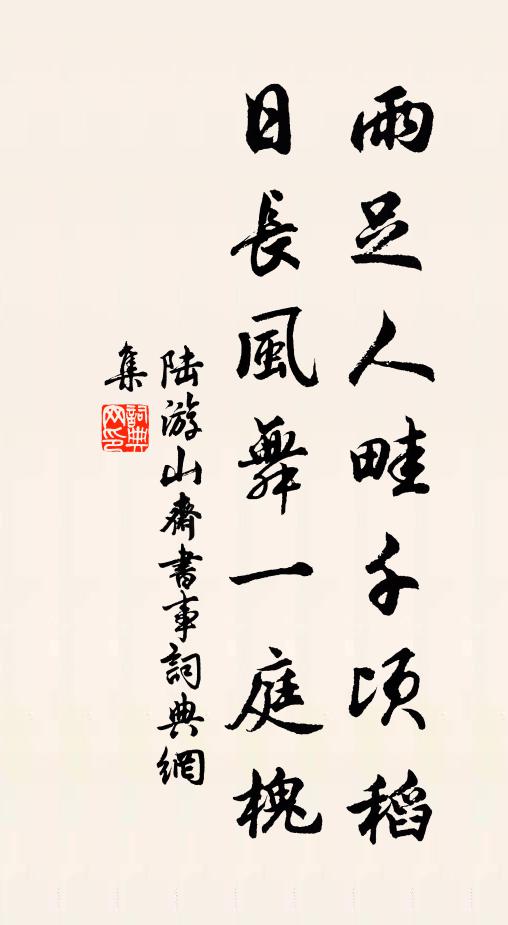 雨足人畦千頃稻
日長風舞一庭槐
陆游山齋書事詞典網
集
詞典網印